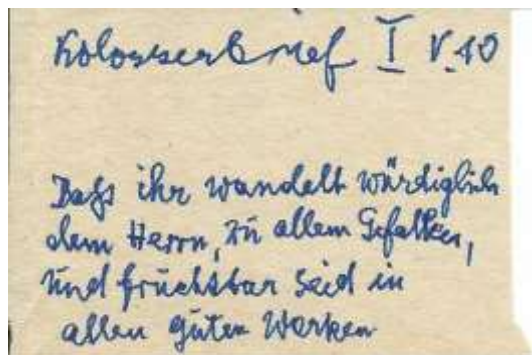 Kolosserbrief I V.10
Daß ihr wandelt würdiglich
dem Herrn, zu allem Gefallen,
und fruchtbar seid in
allen guten Werken